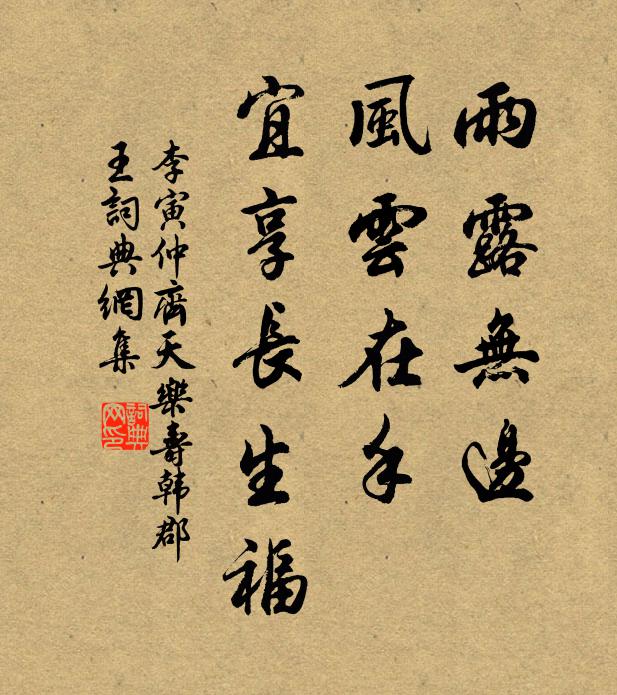 雨露無邊
風雲在手
宜享長生福
李寅仲齊天樂壽韩郡
王詞典網集
詞典网印